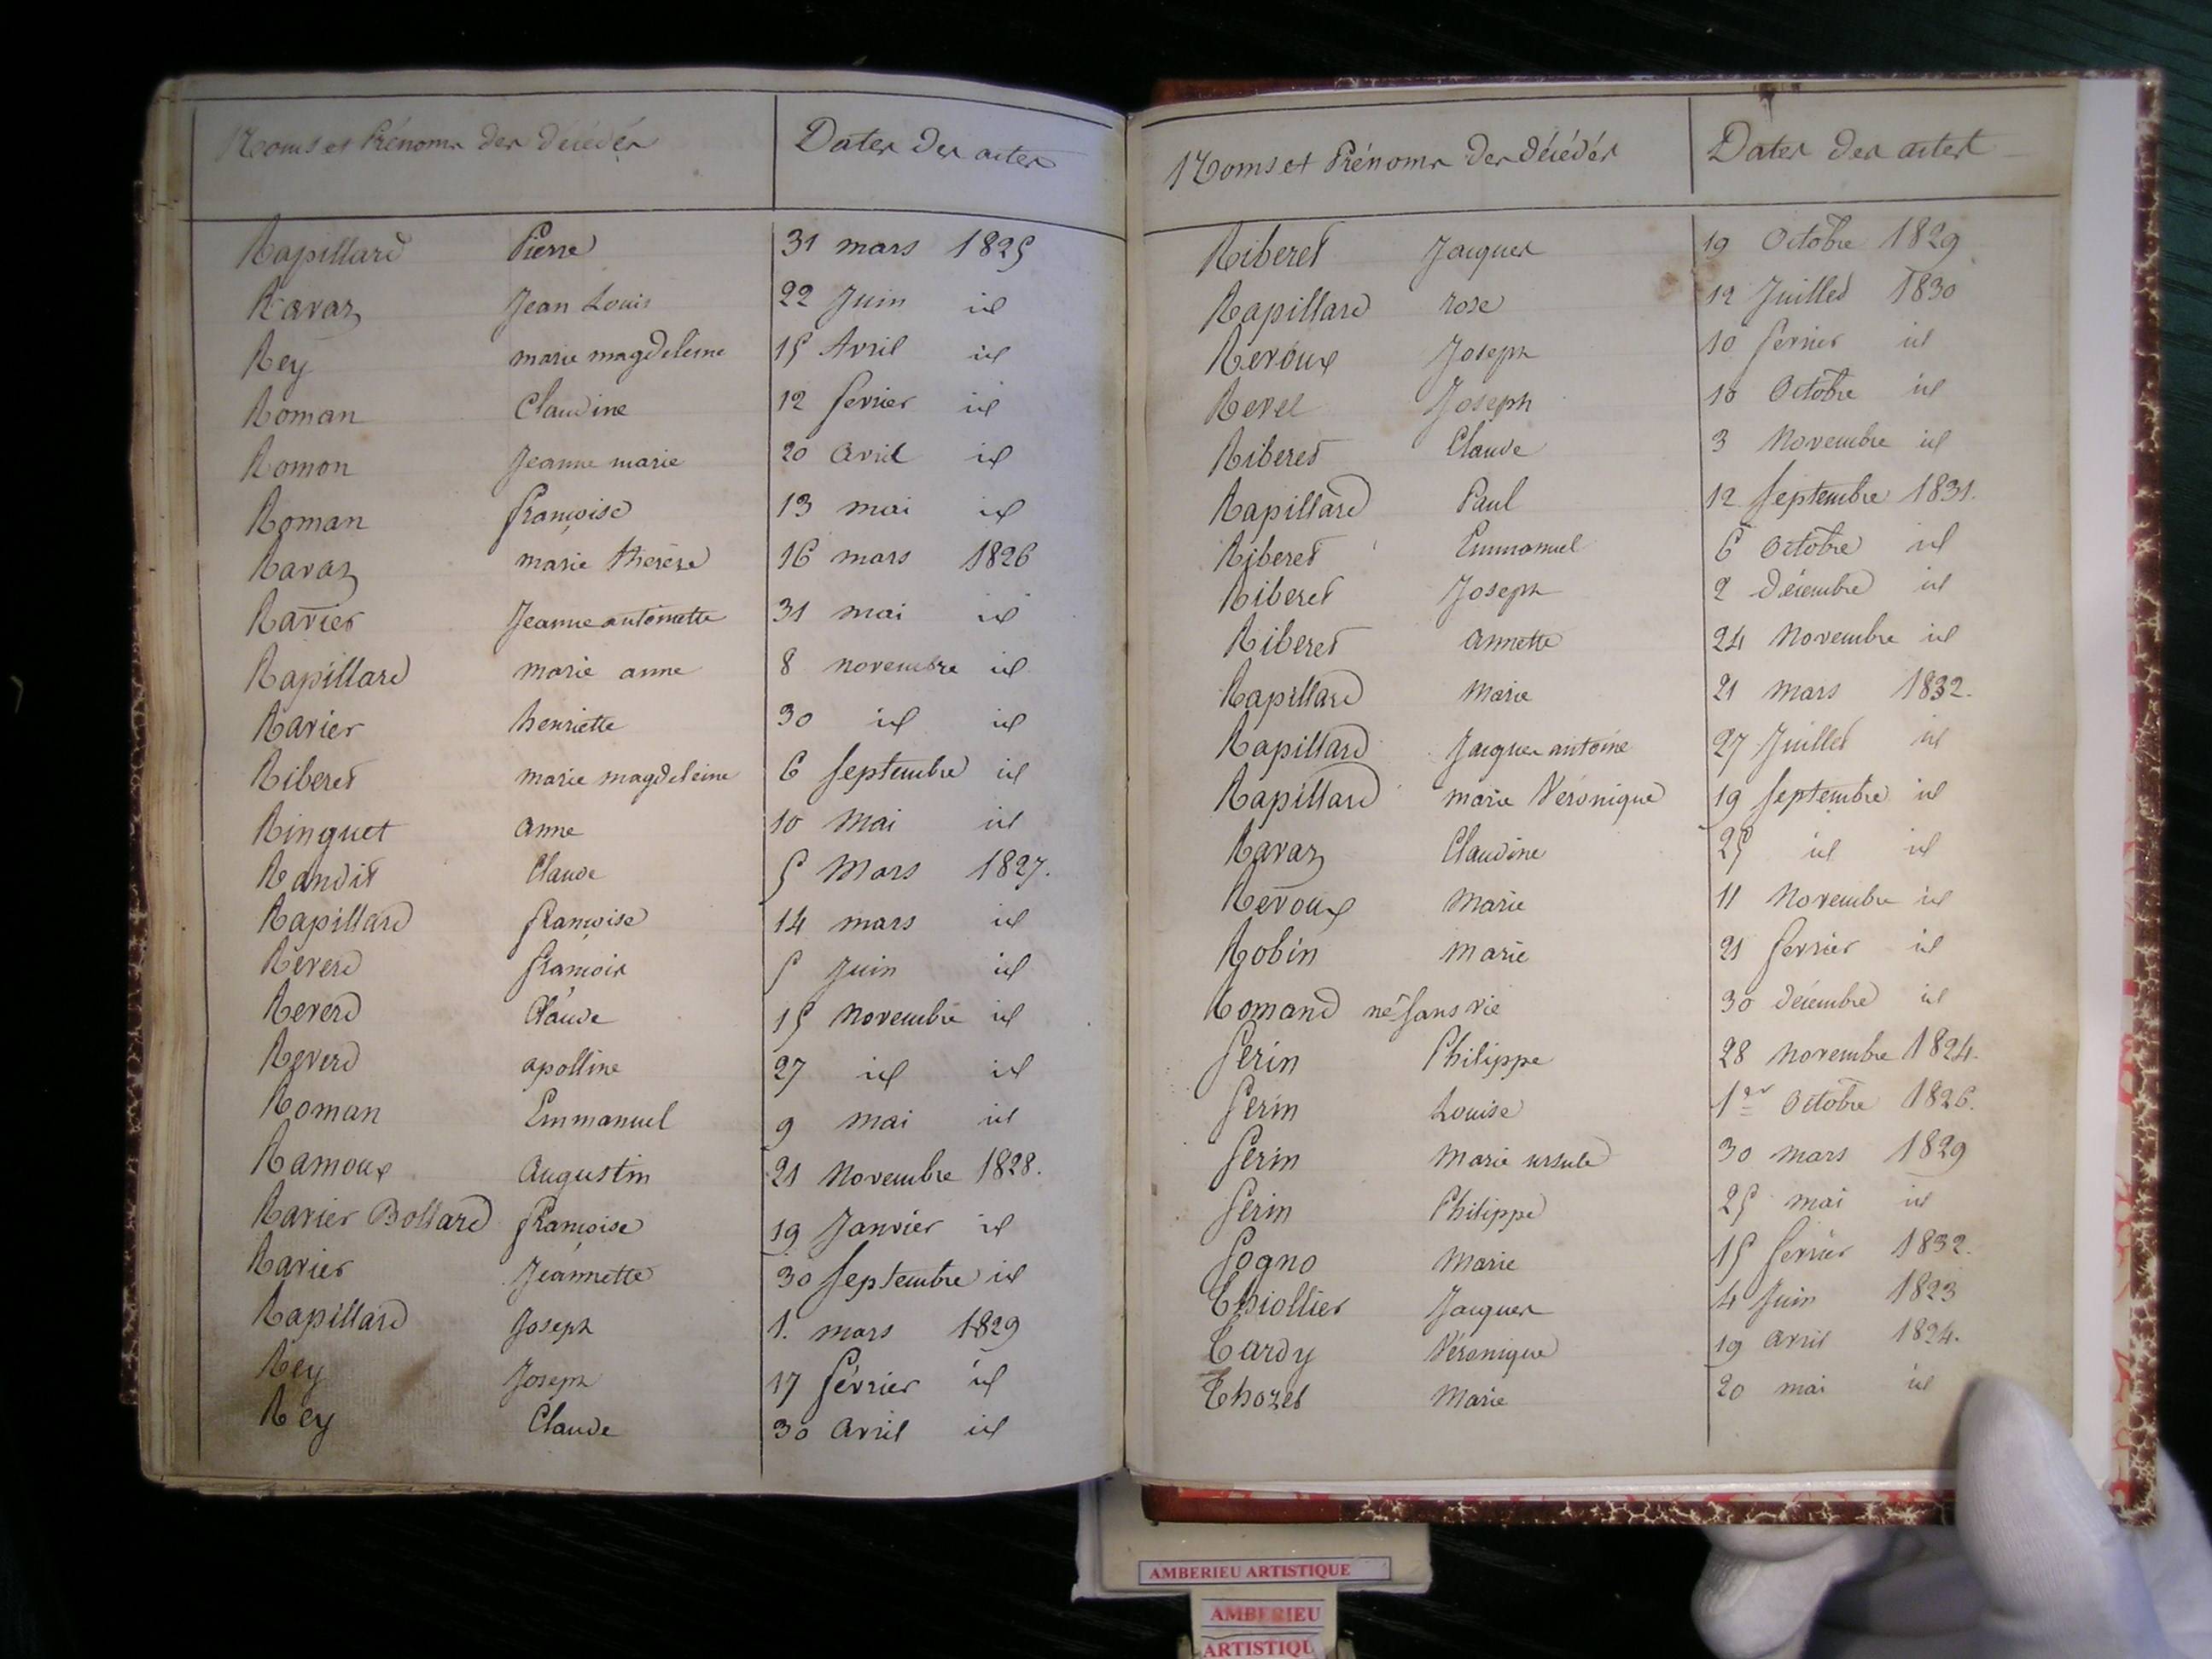 Noms et Prénoms des décédés Dates des actes
Rapillard Pierre 31 mars 1825
Ravaz Jean Louis 22 Juin id
Rey marie magdeleine 15 Avril id
Roman Claudine 12 fevrier id
Romon Jeanne marie 20 avril id
Roman françoise 13 mai id
Ravaz marie thérèse 16 mars 1826
Ravier Jeanne antoinette 31 mai id
Rapillard marie anne 8 novembre id
Ravier henriette 30 id id
Riberet marie magdeleine 6 Septembre id
Ringuet anne 10 Mai id
Randit Claude 5 Mars 1827.
Rapillard françoise 14 mars id
Reverd françois 5 Juin id
Reverd Claude 15 Novembre id
Reverd apolline 27 id id
Roman Emmanuel 9 mai id
Ramoux Augustin 21 Novembre 1828.
Ravier Bollard françoise 19 Janvier id
Ravier Jeannette 30 Septembre id
Rapillard Joseph 1. mars 1829
Rey Joseph 17 février id
Rey Claude 30 avril id
Noms et Prénoms des décédés Dates des actes
Riberet Jacques 19 Octobre 1829
Rapillard rose 12 Juillet 1830
Reroux Joseph 10 fevrier id
Revel Joseph 10 Octobre id
Riberet Claude 3 Novembre id
Rapillard Paul 12 Septembre 1831.
Riberet Emmanuel 6 Octobre id
Riberet Joseph 2 décembre id
Riberet annette 24 Novembre id
Rapillard Marie 21 Mars 1832.
Rapillard Jacques antoine 27 Juillet id
Rapillard marie Véronique 19 Septembre id
Ravaz Claudine 25 id id
Reroux Marie 11 Novembre id
Robin Marie 21 fevrier id
Romand né sans vie 30 décembre id
Serin Philippe 28 Novembre 1824.
Serin Louise 1er Octobre 1826.
Serin Marie ursule 30 mars 1829
Serin Philippe 25 mai id
Sogno Marie 15 fevrier 1832.
Thiollier Jacques 4 Juin 1823
Tardy Véronique 19 avril 1824.
Thozet Marie 20 mai id
AMBERIEU ARTISTIQUE
AMBERIEU
ARTISTIQU